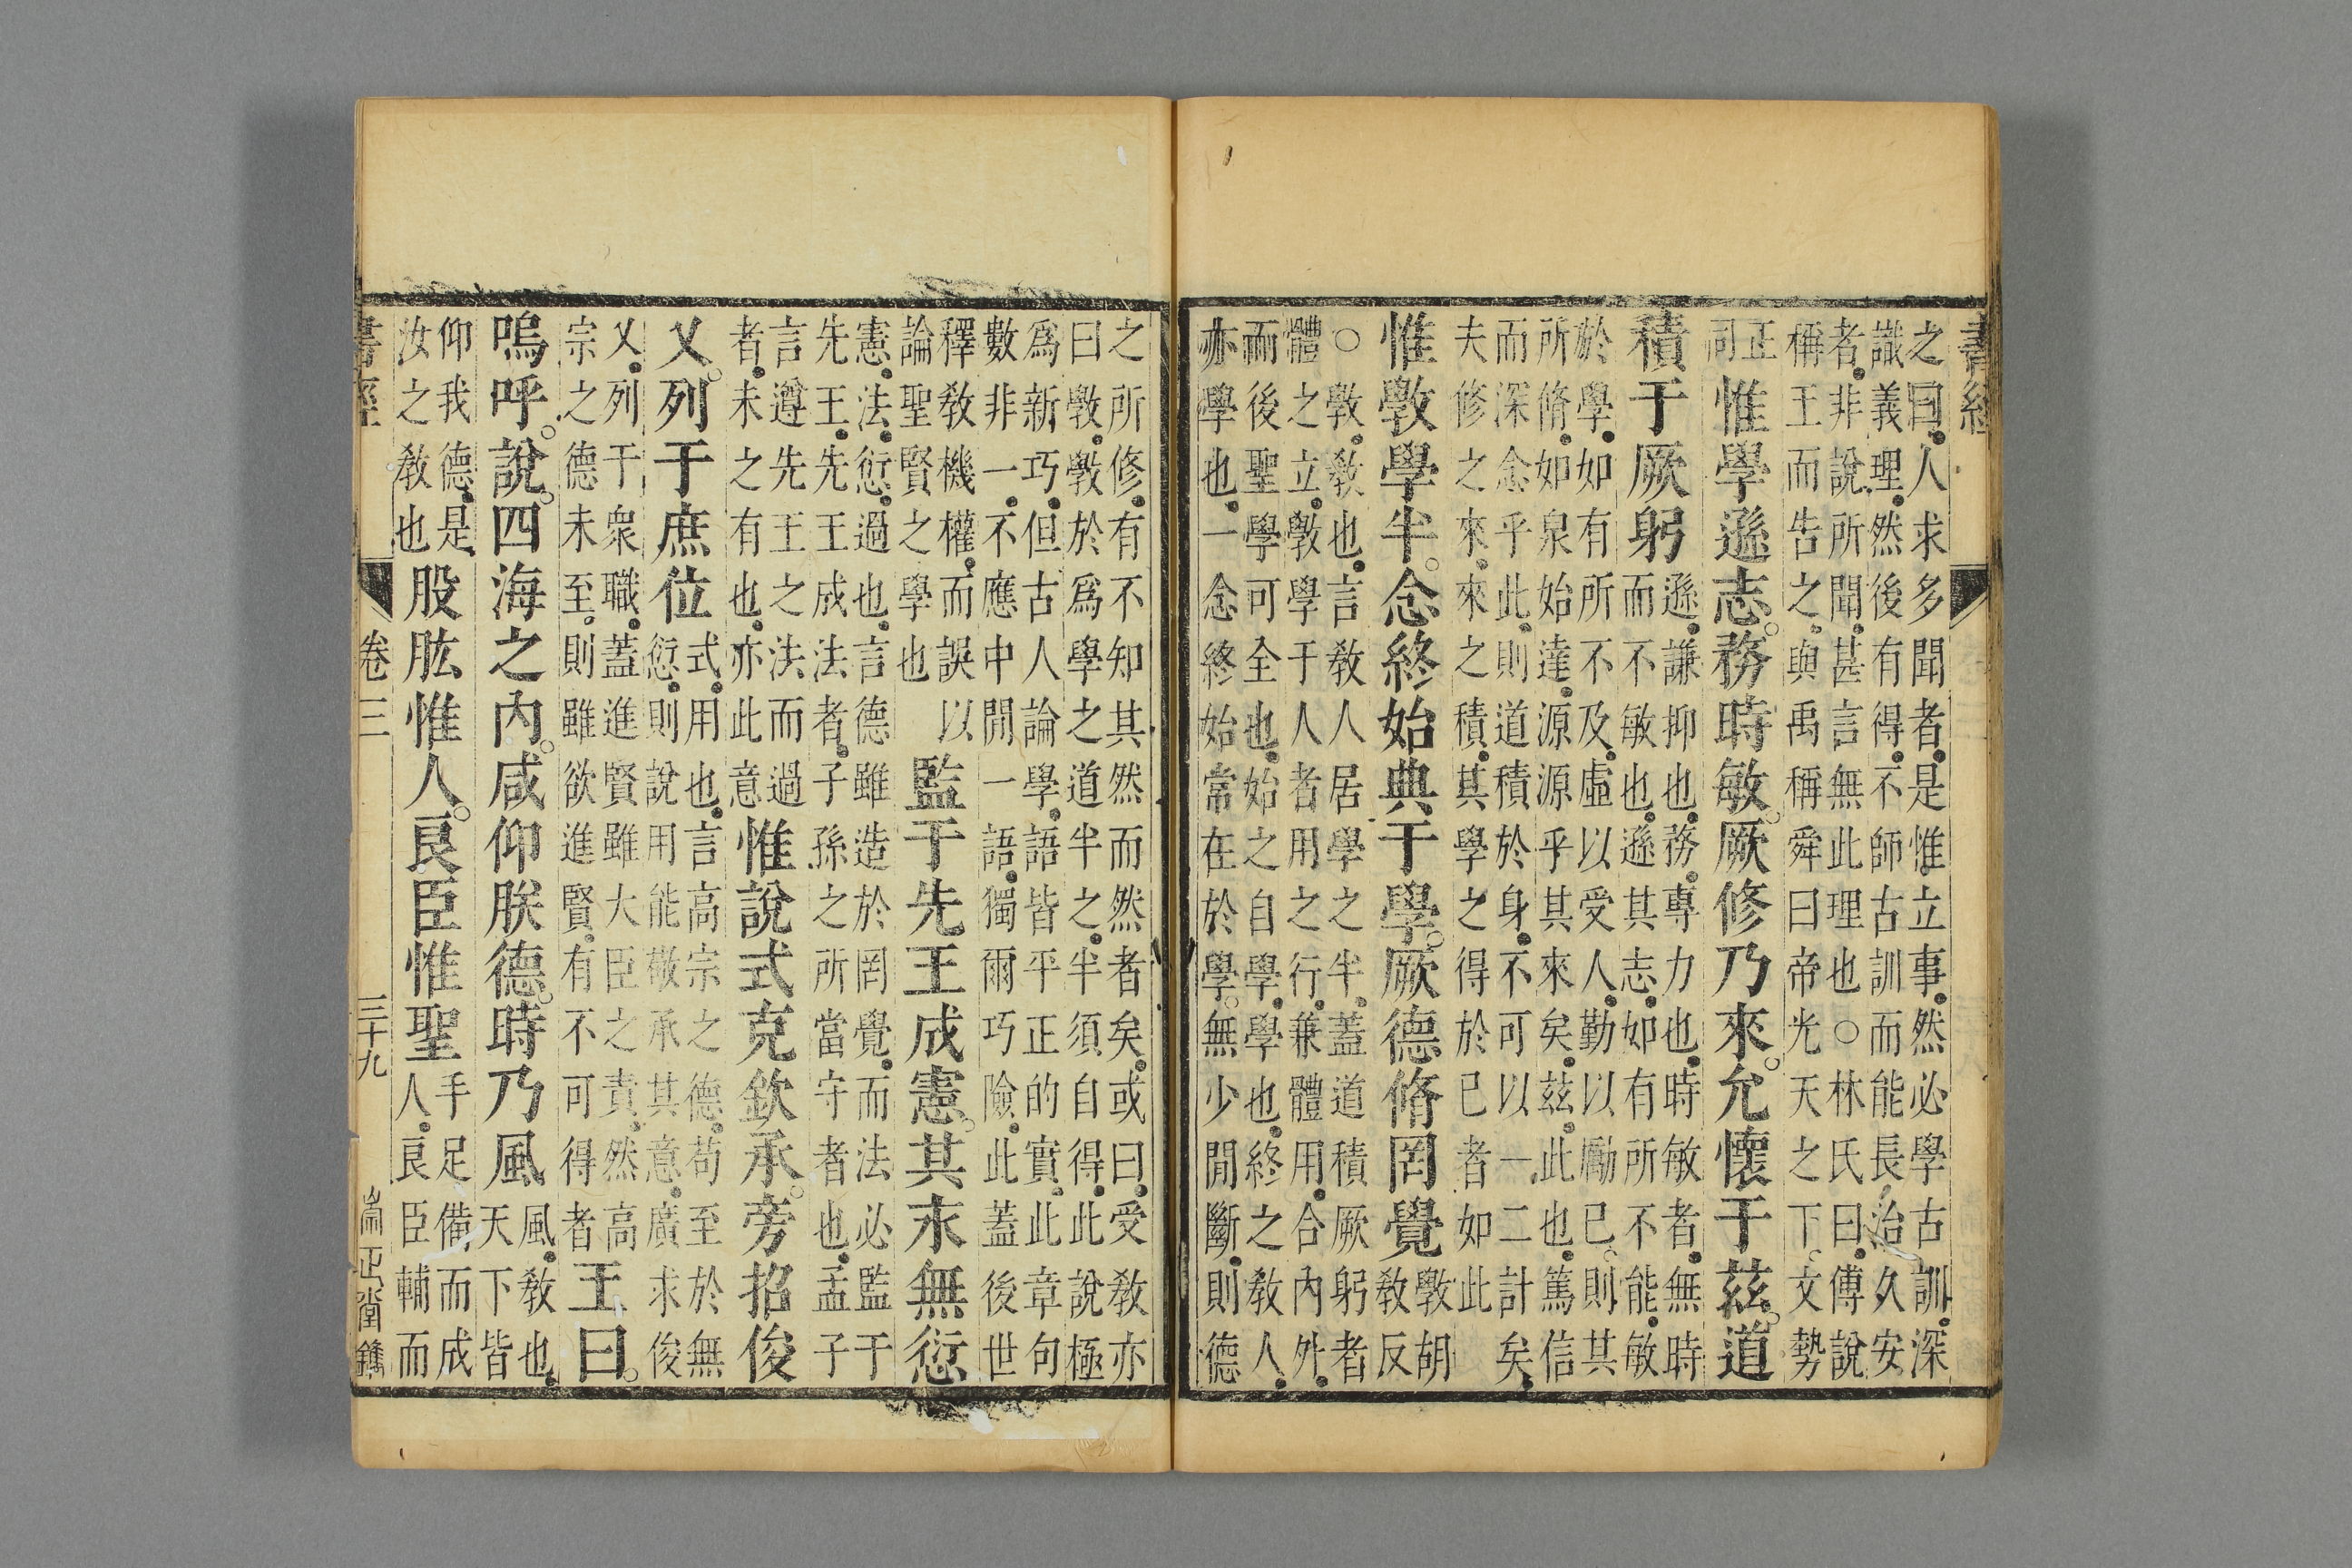 書經
之曰人求多聞者是惟立事然必學古訓深
識義理然後有得不師古訓而能長治久安
者非說所聞甚言無此理也○林氏曰傅說
稱王而告之與禹稱舜曰帝光天之下文勢
正
司
惟學遜志務時敏厥修乃來允懷于茲道
積于厥躬
遜謙抑也務專力也時敏者無時
而不敏也遜其志如有所不能敏
於學如有所不及虛以受人勤以勵己則其
所脩如泉始達源源乎其來矣茲此也篤信
而深念乎此則道積於身不可以一二計矣
夫修之來來之積其學之得於己者如此
惟斆學半念終始典于學厥德脩罔覺
斆胡
教反
○斆教也言教人居學之半蓋道積厥躬者
體之立斆學于人者用之行兼體用合內外
而後聖學可全也始之自學學也終之教人
亦學也一念終始常在於學無少閒斷則德
之所修有不知其然而然者矣或曰受教亦
曰斆斆於爲學之道半之半須自得此說極
爲新巧但古人論學語皆平正的實此章句
數非一不應中閒一語獨爾巧險此蓋後世
釋教機權而誤以
論聖賢之學也
監于先王成憲其永無愆
憲法愆過也言德雖造於罔覺而法必監于
先王先王成法者子孫之所當守者也孟子
言遵先王之法而過
者未之有也亦此意
惟說式克欽承旁招俊
乂列于庶位
式用也言高宗之德苟至於無
愆則說用能敬承其意廣求俊
乂列于衆職蓋進賢雖大臣之責然高
宗之德未至則雖欲進賢有不可得者
王曰
嗚呼說四海之內咸仰朕德時乃風
風教也
天下皆
仰我德是
汝之教也
股肱惟人良臣惟聖
手足備而成
人良臣輔而
書經 卷三 三十九 崇正堂鐫